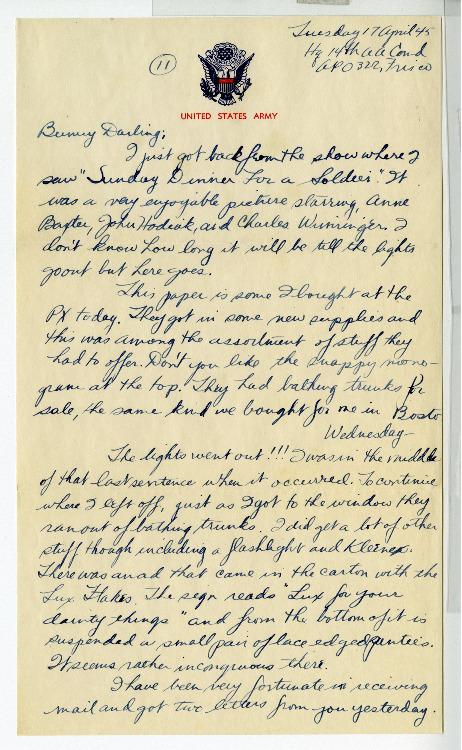 Tuesday 17 April 45
Hq 14th AA Com'd
APO 322, Frisco
11
UNITED STATES ARMY
Bunny Darling;
I just got back from the show where I
saw "Sunday Dinner For a Soldier." It
was a very enjoyable picture starring, Anne
Baxter, John Hodiak, and Charles Winninger. I
don't know how long it will be till the lights
go out but here goes.
This paper is some I bought at the
PX today. They got in some new supplies and
this was among the assortment of stuff they
had to offer. Don't you like the snappy mono-
gram at the top. They had bathing trunks for
sale, the same kind we bought for me in Bosto
Wednesday-
The lights went out!!! I was in the middle
of that last sentence when it occurred. To continue
where I left off, just as I got to the window they
ran out of bathing trunks. I did get a lot of other
stuff though including a flashlight and Kleenex.
There was an ad that came in the carton with the
Lux Flakes. The sign reads "Lux for your
dainty things" and from the bottom of it is
suspended a small pair of lace edged panties.
It seems rather incongruous there.
I have been very fortunate in receiving
mail and got two letters from you yesterday.